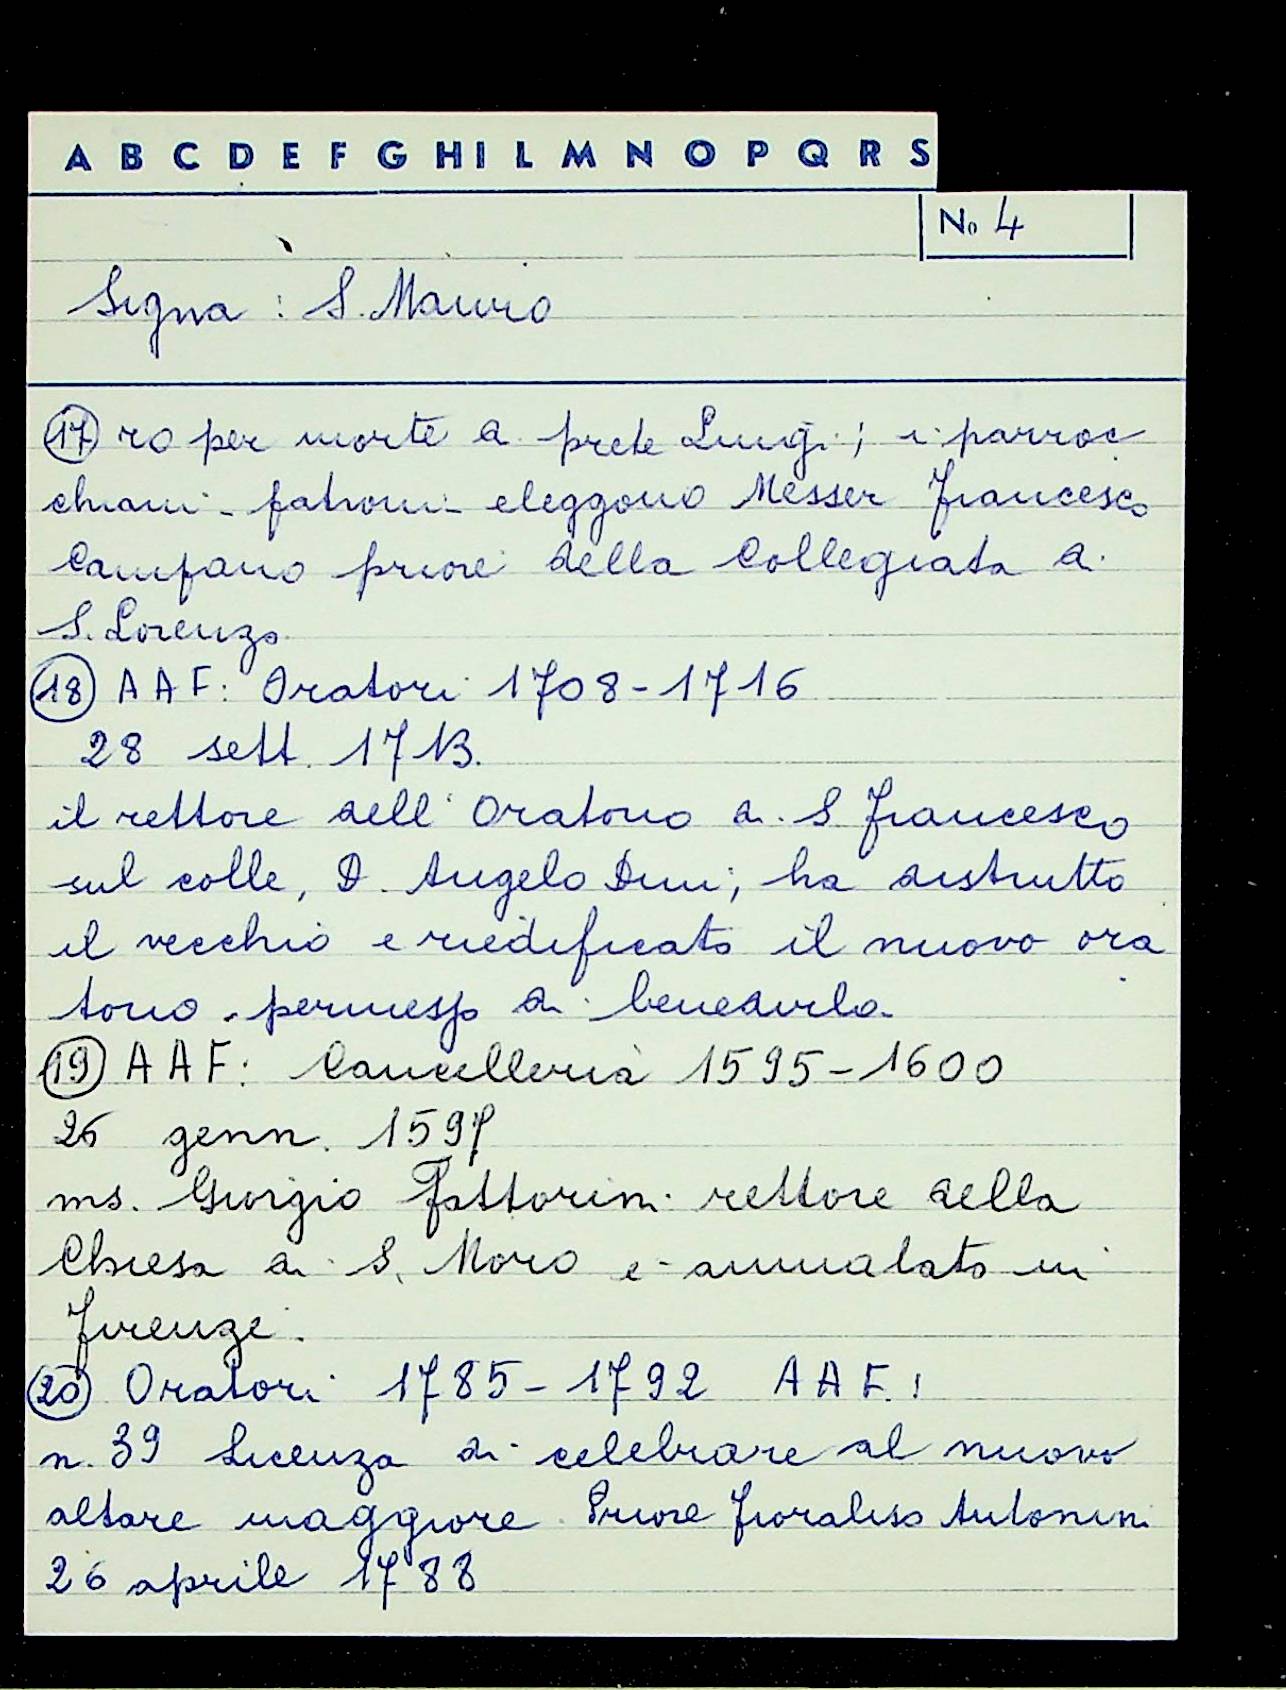 A B C D E F G H I L M N O P Q R S
No 4
Signa : S. Mauro
17 ro per morte di prete Luigi; i parroc
chiani - patroni - eleggono Messer Francesco
Campano priore della Collegiata di
S. Lorenzo.
18 A A F: Oratori 1708-1716
28 sett. 1713.
il rettore dell'Oratorio di S Francesco
sul colle, D. Angelo Dini, ha distrutto
il vecchio e riedificato il nuovo ora
torio. permesso di benedirlo.
19 A A F: Cancelleria 1595-1600
26 genn. 1597
ms. Giorgio Fattorini rettore della
Chiesa di S. Moro è ammalato in
Firenze.
20 Oratori 1785-1792 A A F:
n. 39 Licenza di celebrare al nuovo
altare maggiore. Priore Fioraliso Antonini
26 aprile 1788